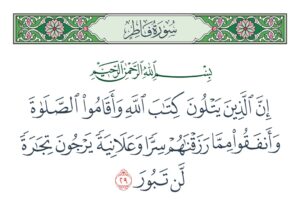 سُورَةُ فَاطِرٍ
بِسْمِ ٱللَّهِ ٱلرَّحْمَٰنِ ٱلرَّحِيمِ
إِنَّ ٱلَّذِينَ يَتْلُونَ كِتَٰبَ ٱللَّهِ وَأَقَامُوا۟ ٱلصَّلَوٰةَ
وَأَنفَقُوا۟ مِمَّا رَزَقْنَٰهُمْ سِرًّا وَعَلَانِيَةً يَرْجُونَ تِجَٰرَةً
لَّن تَبُورَ ٢٩